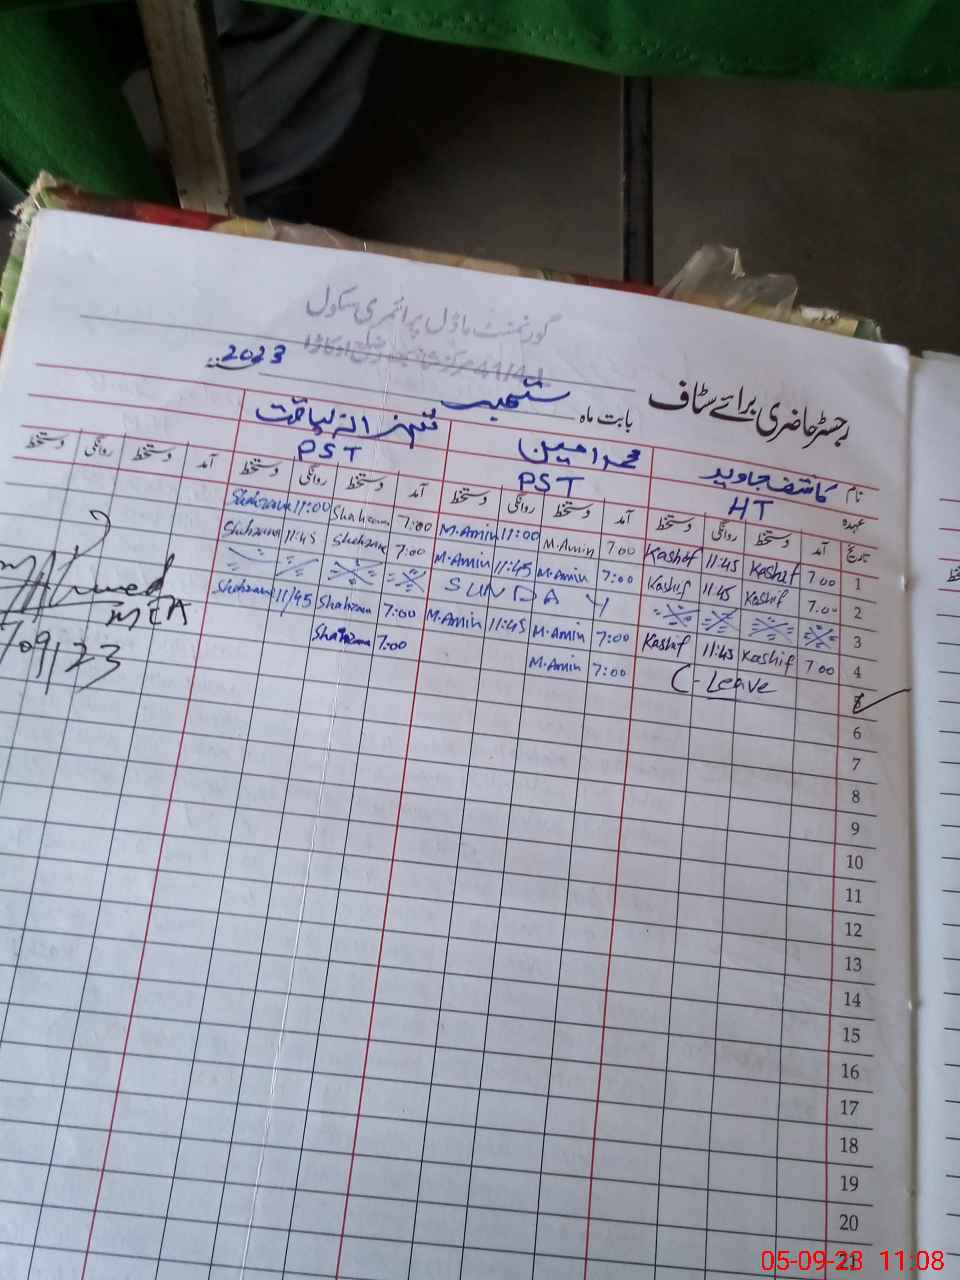 گورنمنٹ ماڈل پرائمری سکول
41/4-L
رجسٹر حاضری برائے سٹاف بابت ماہ ستمبر 2023
نام کاشف جاوید محمد امین شہزاد لیاقت
عہدہ HT PST PST
تاریخ آمد دستخط روانگی دستخط آمد دستخط روانگی دستخط آمد دستخط روانگی دستخط آمد دستخط روانگی دستخط
1 7.00 Kashif 11:45 Kashif 7.00 M.Amin 11:00 M.Amin 7:00 Shahzan 11:00 Shahzan
2 7.00 Kashif 11:45 Kashif 7:00 M.Amin 11:45 M.Amin 7:00 Shahzan 11:45 Shahzan
3 SUNDAY
4 7.00 Kashif 11:45 Kashif 7:00 M.Amin 11:45 M.Amin 7:00 Shahzan 11/45 Shahzan
C-Leave 7:00 M.Amin 7:00 Shahzan
Ahmed
MEA
/09/23
6
7
8
9
10
11
12
13
14
15
16
17
18
19
20
21
05-09-23 11:08